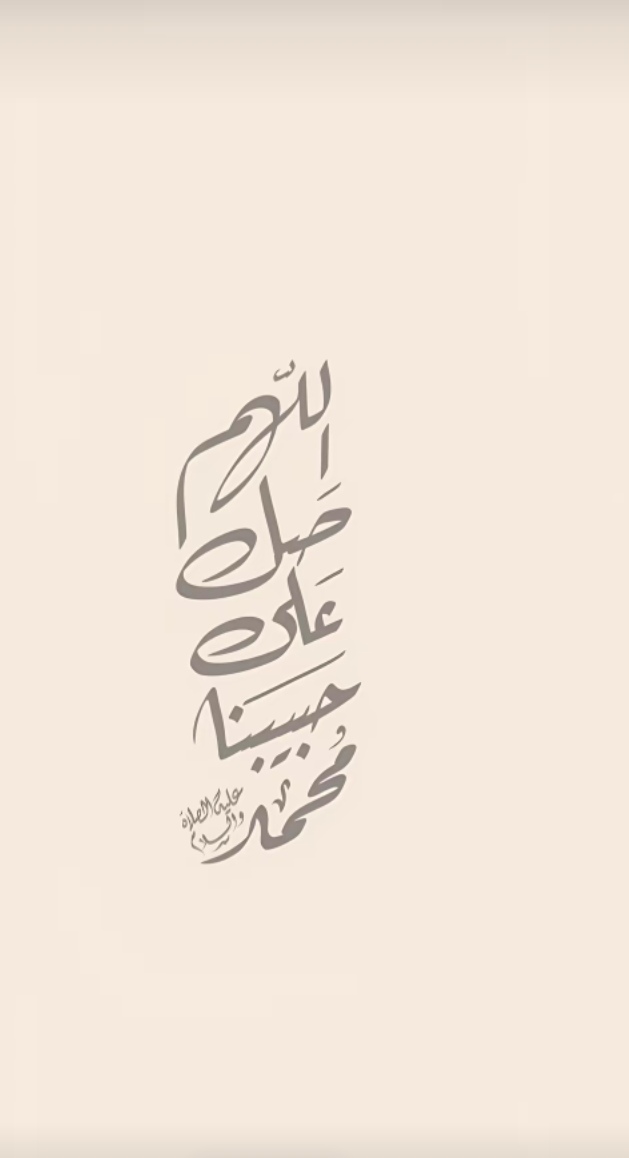 اللّهم
صَل
عَلى
حبيبنا
مُحمد
عليه الصلاة
والسلام